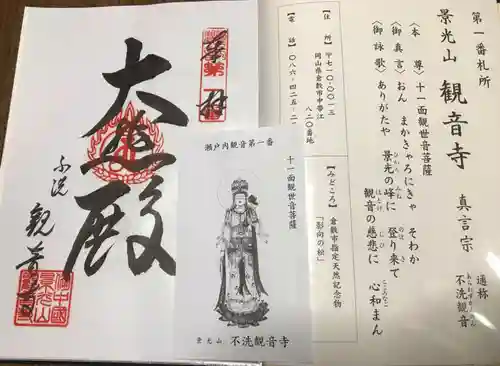 第一番札所
景光山 観音寺 真言宗
通称
不洗観音
あらわずかんのん
〈本 尊〉十一面観世音菩薩
〈御真言〉おん まかきゃろにきゃ そわか
〈御詠歌〉ありがたや 景光の峰に 登り来て
ひかり みね のぼ き
観音の慈悲に 心和まん
ほとけ じひ こころなご
【住 所】〒七一〇-〇〇一三
岡山県倉敷市中帯江
八二〇番地
【電 話】〇八六-四二五-二
【みどころ】 倉敷市指定天然記念物
「影向の松」
奉拝
大悲殿
不洗
観音寺
瀬戸内観音第一番
十一面観世音菩薩
景光山 不洗観音寺